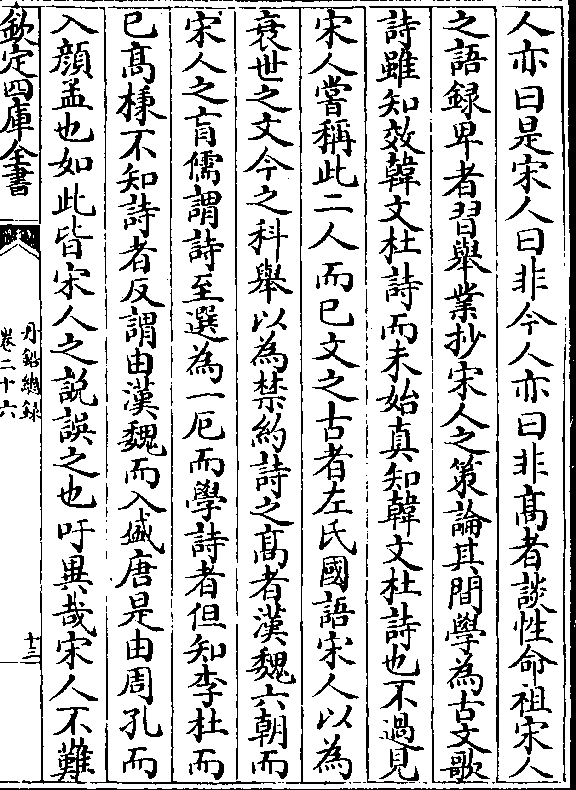 人亦曰是宋人曰非今人亦曰非髙者談性命祖宋人
之語録卑者習舉業抄宋人之策論其間學為古文歌
詩雖知效韓文杜詩而未始真知韓文杜詩也不過見
宋人嘗稱此二人而已文之古者左氏國語宋人以為
衰世之文今之科舉以為禁約詩之髙者漢魏六朝而
宋人之肓儒謂詩至選為一厄而學詩者但知李杜而
已髙棅不知詩者反謂由漢魏而入盛唐是由周孔而
入顔孟也如此皆宋人之説誤之也吁異哉宋人不難
欽定四庫全書
丹鉛總録
卷二十六
十三